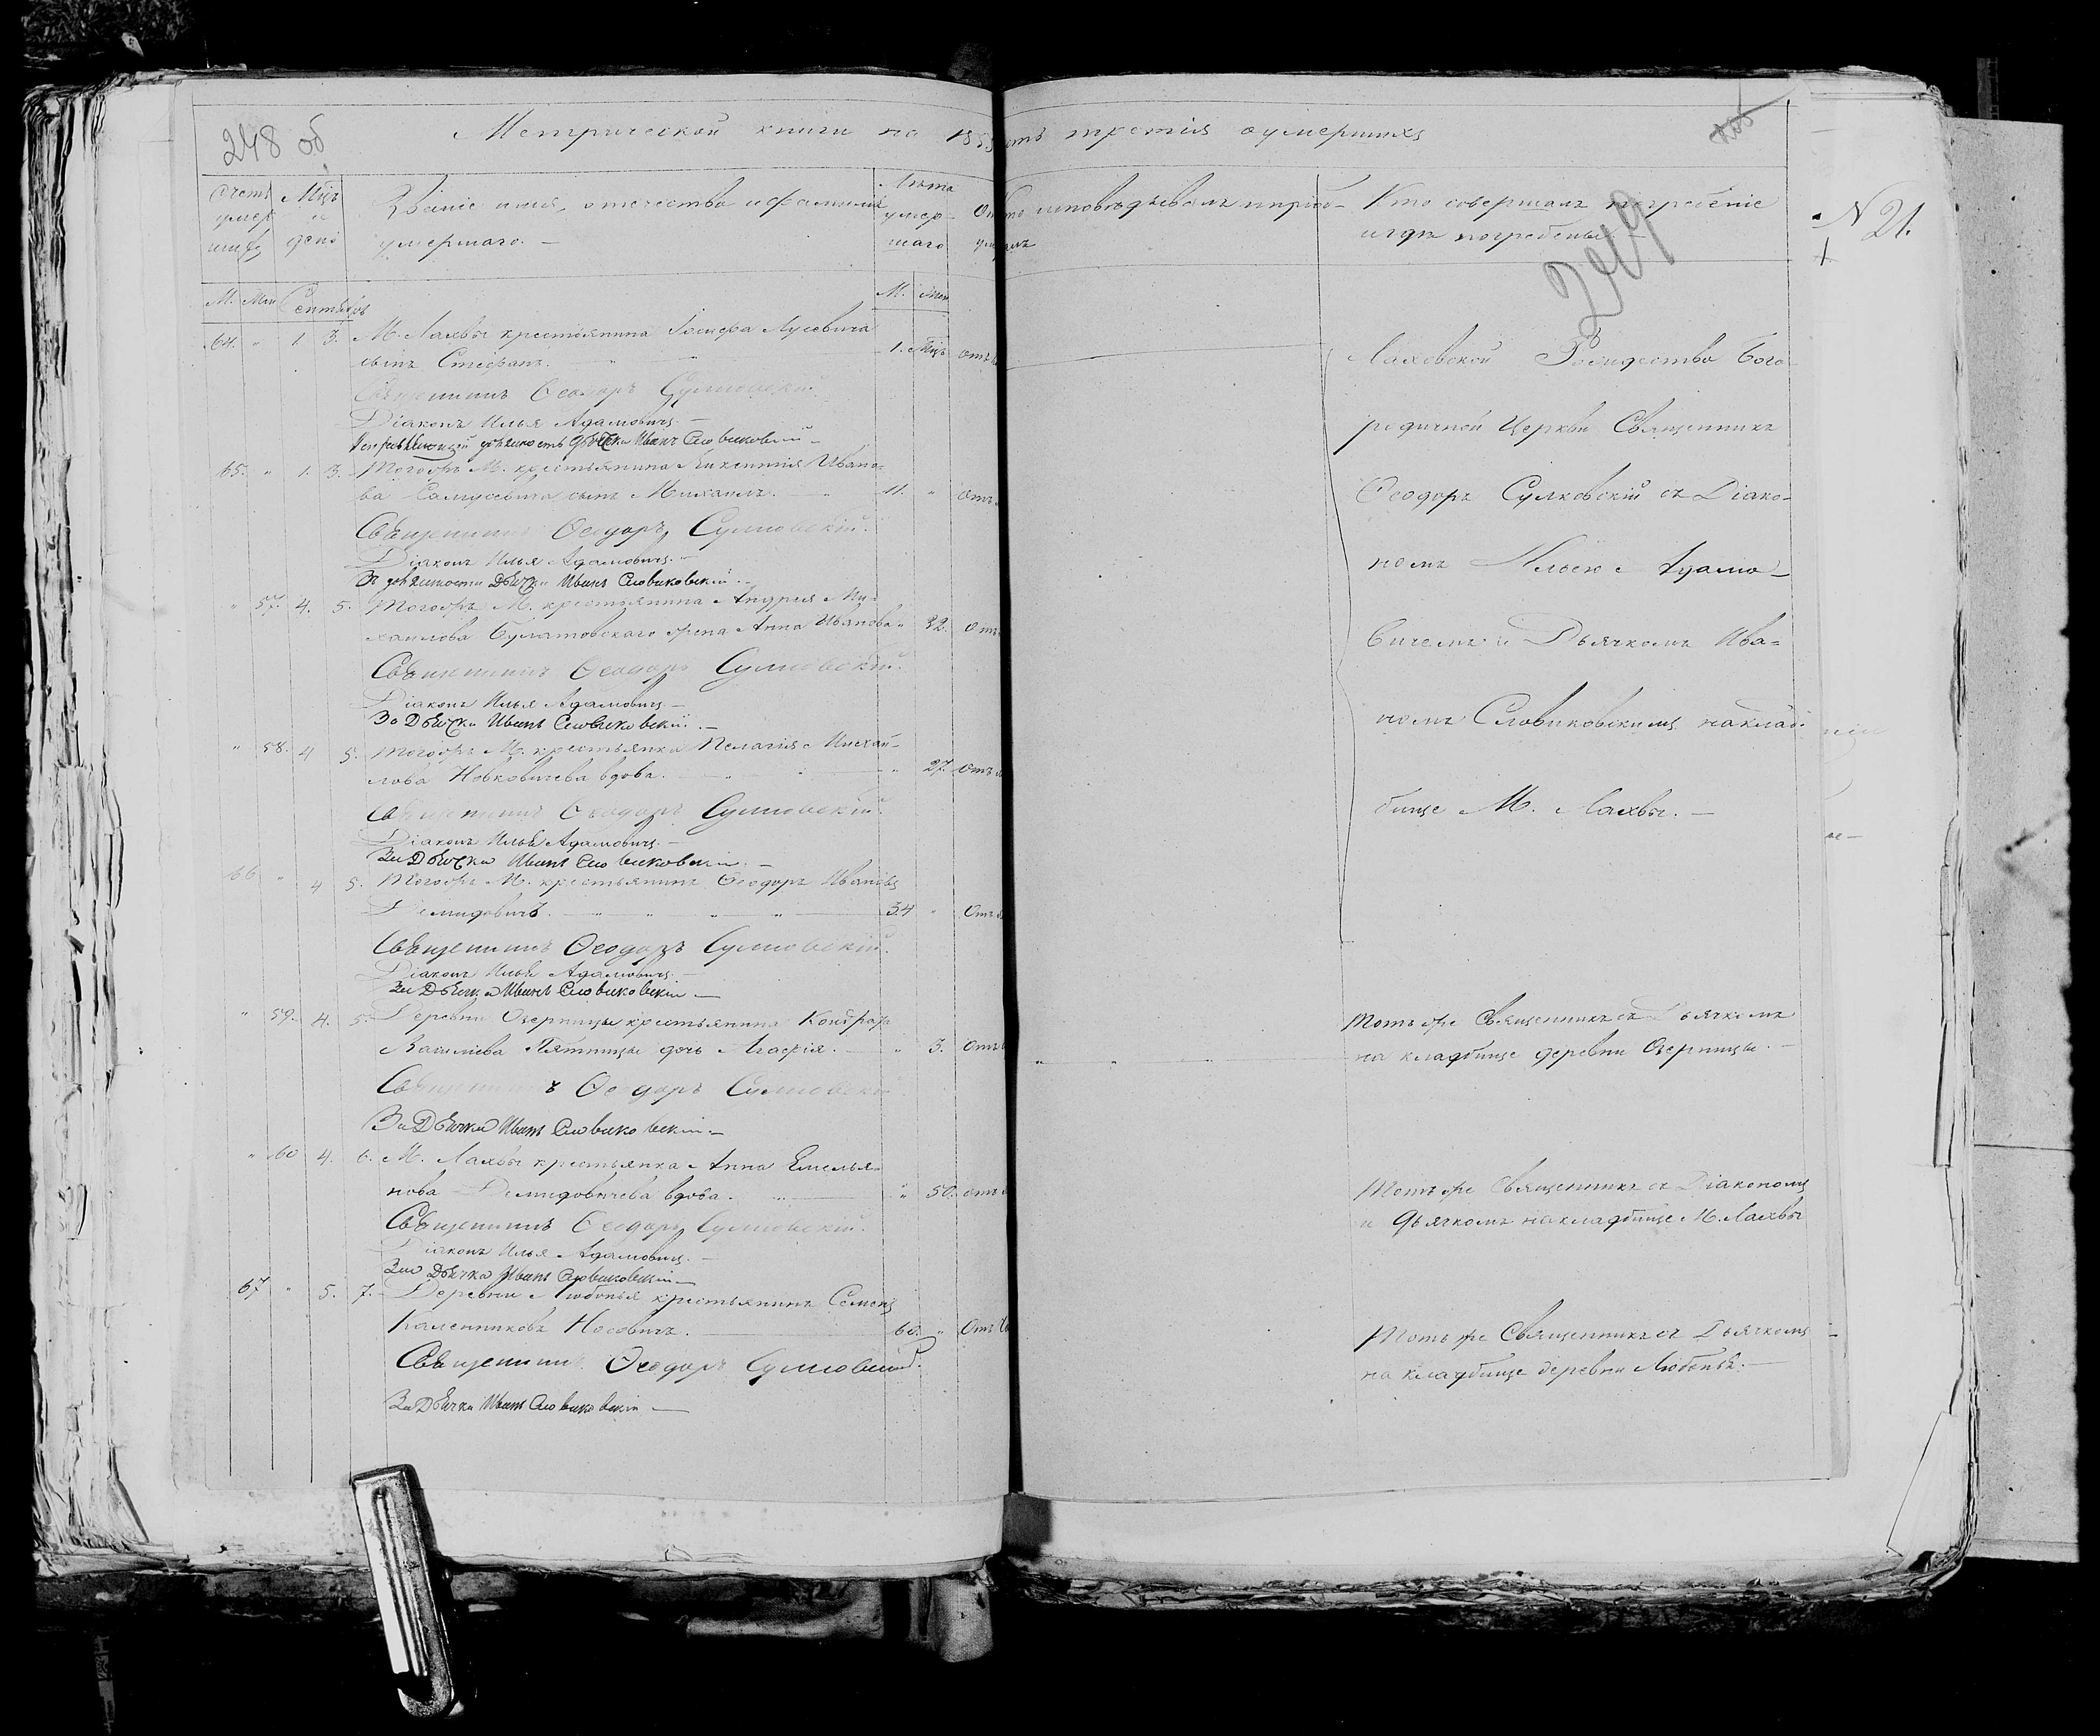 248 об
Метрической книги на 185
Счетъ умершихъ
Мцъ и день
Званіе имя, отечество и фамилія умершаго. —
Лѣта умершаго
М. Жен
Сентябрь
М. Жен
64. " 1. 3. М. Лахвы крестьянина Іосифа Лусевича
сынъ Стефанъ. 1. Мцъ отъ
Священникъ Ѳеодоръ Сулковскій.
Діаконъ Илья Адамовичъ. —
Исправляющій должность Дьячка Иванъ Словиковскій —
65. " 1. 3. Тогожъ М. крестьянина Викентія Ивано-
ва Самусевича сынъ Михаилъ. 11. " отъ
Священникъ Ѳеодоръ Сулковскій.
Діаконъ Илья Адамовичъ. —
За должности Дьячка Иванъ Словиковскій. —
" 57. 4. 5. Тогожъ М. крестьянина Андрея Ми-
хаилова Булатовскаго жена Анна Иванова " 32. отъ
Священникъ Ѳеодоръ Сулковскій.
Діаконъ Илья Адамовичъ. —
За Дьячка Иванъ Словиковскій. —
" 58. 4 5. Тогожъ М. крестьянка Пелагія Михай-
лова Новковичева вдова. " 27. отъ
Священникъ Ѳеодоръ Сулковскій.
Діаконъ Илья Адамовичъ. —
За Дьячка Иванъ Словиковскій. —
66 " 4 5. Тогожъ М. крестьянинъ Ѳеодоръ Ивановъ
Демидовичъ. 34 " Отъ
Священникъ Ѳеодоръ Сулковскій.
Діаконъ Илья Адамовичъ. —
За Дьячка Иванъ Словиковскій —
" 59. 4. 5. Деревни Озерницы крестьянина Кондрата
Василіева Пятницы дочь Агафія. " 3. Отъ
Священникъ Ѳеодоръ Сулковскій
За Дьячка Иванъ Словиковскій. —
" 60 4. 6. М. Лахвы крестьянка Анна Емелья-
нова Демидовичева вдова. " 50. отъ
Священникъ Ѳеодоръ Сулковскій.
Діаконъ Илья Адамовичъ. —
За Дьячка Иванъ Словиковскій —
67 " 5. 7. Деревни Любонья крестьянинъ Семенъ
Каленниковъ Носовичъ. 60. " Отъ
Священникъ Ѳеодоръ Сулковскій.
За Дьячка Иванъ Словиковскій —
третія оумершихъ
исповѣдывалъ и пріоб-
Кто совершалъ погребеніе
и гдѣ погребены
249
N 21.
Лаховской Рождество Бого-
родичной Церкви Священникъ
Ѳеодоръ Сулковскій съ Діако-
номъ Ильею Адамо-
вичемъ и Дьячкомъ Ива-
номъ Словиковскимъ на клад-
бище М. Лахвы. —
Тотъ же Священникъ съ Дьячкомъ
на кладбище деревни Озерницы. —
Тотъ же Священникъ съ Діакономъ
и Дьячкомъ на кладбище М. Лахвы
Тотъ же Священникъ съ Дьячкомъ
на кладбище деревни Любонья. —